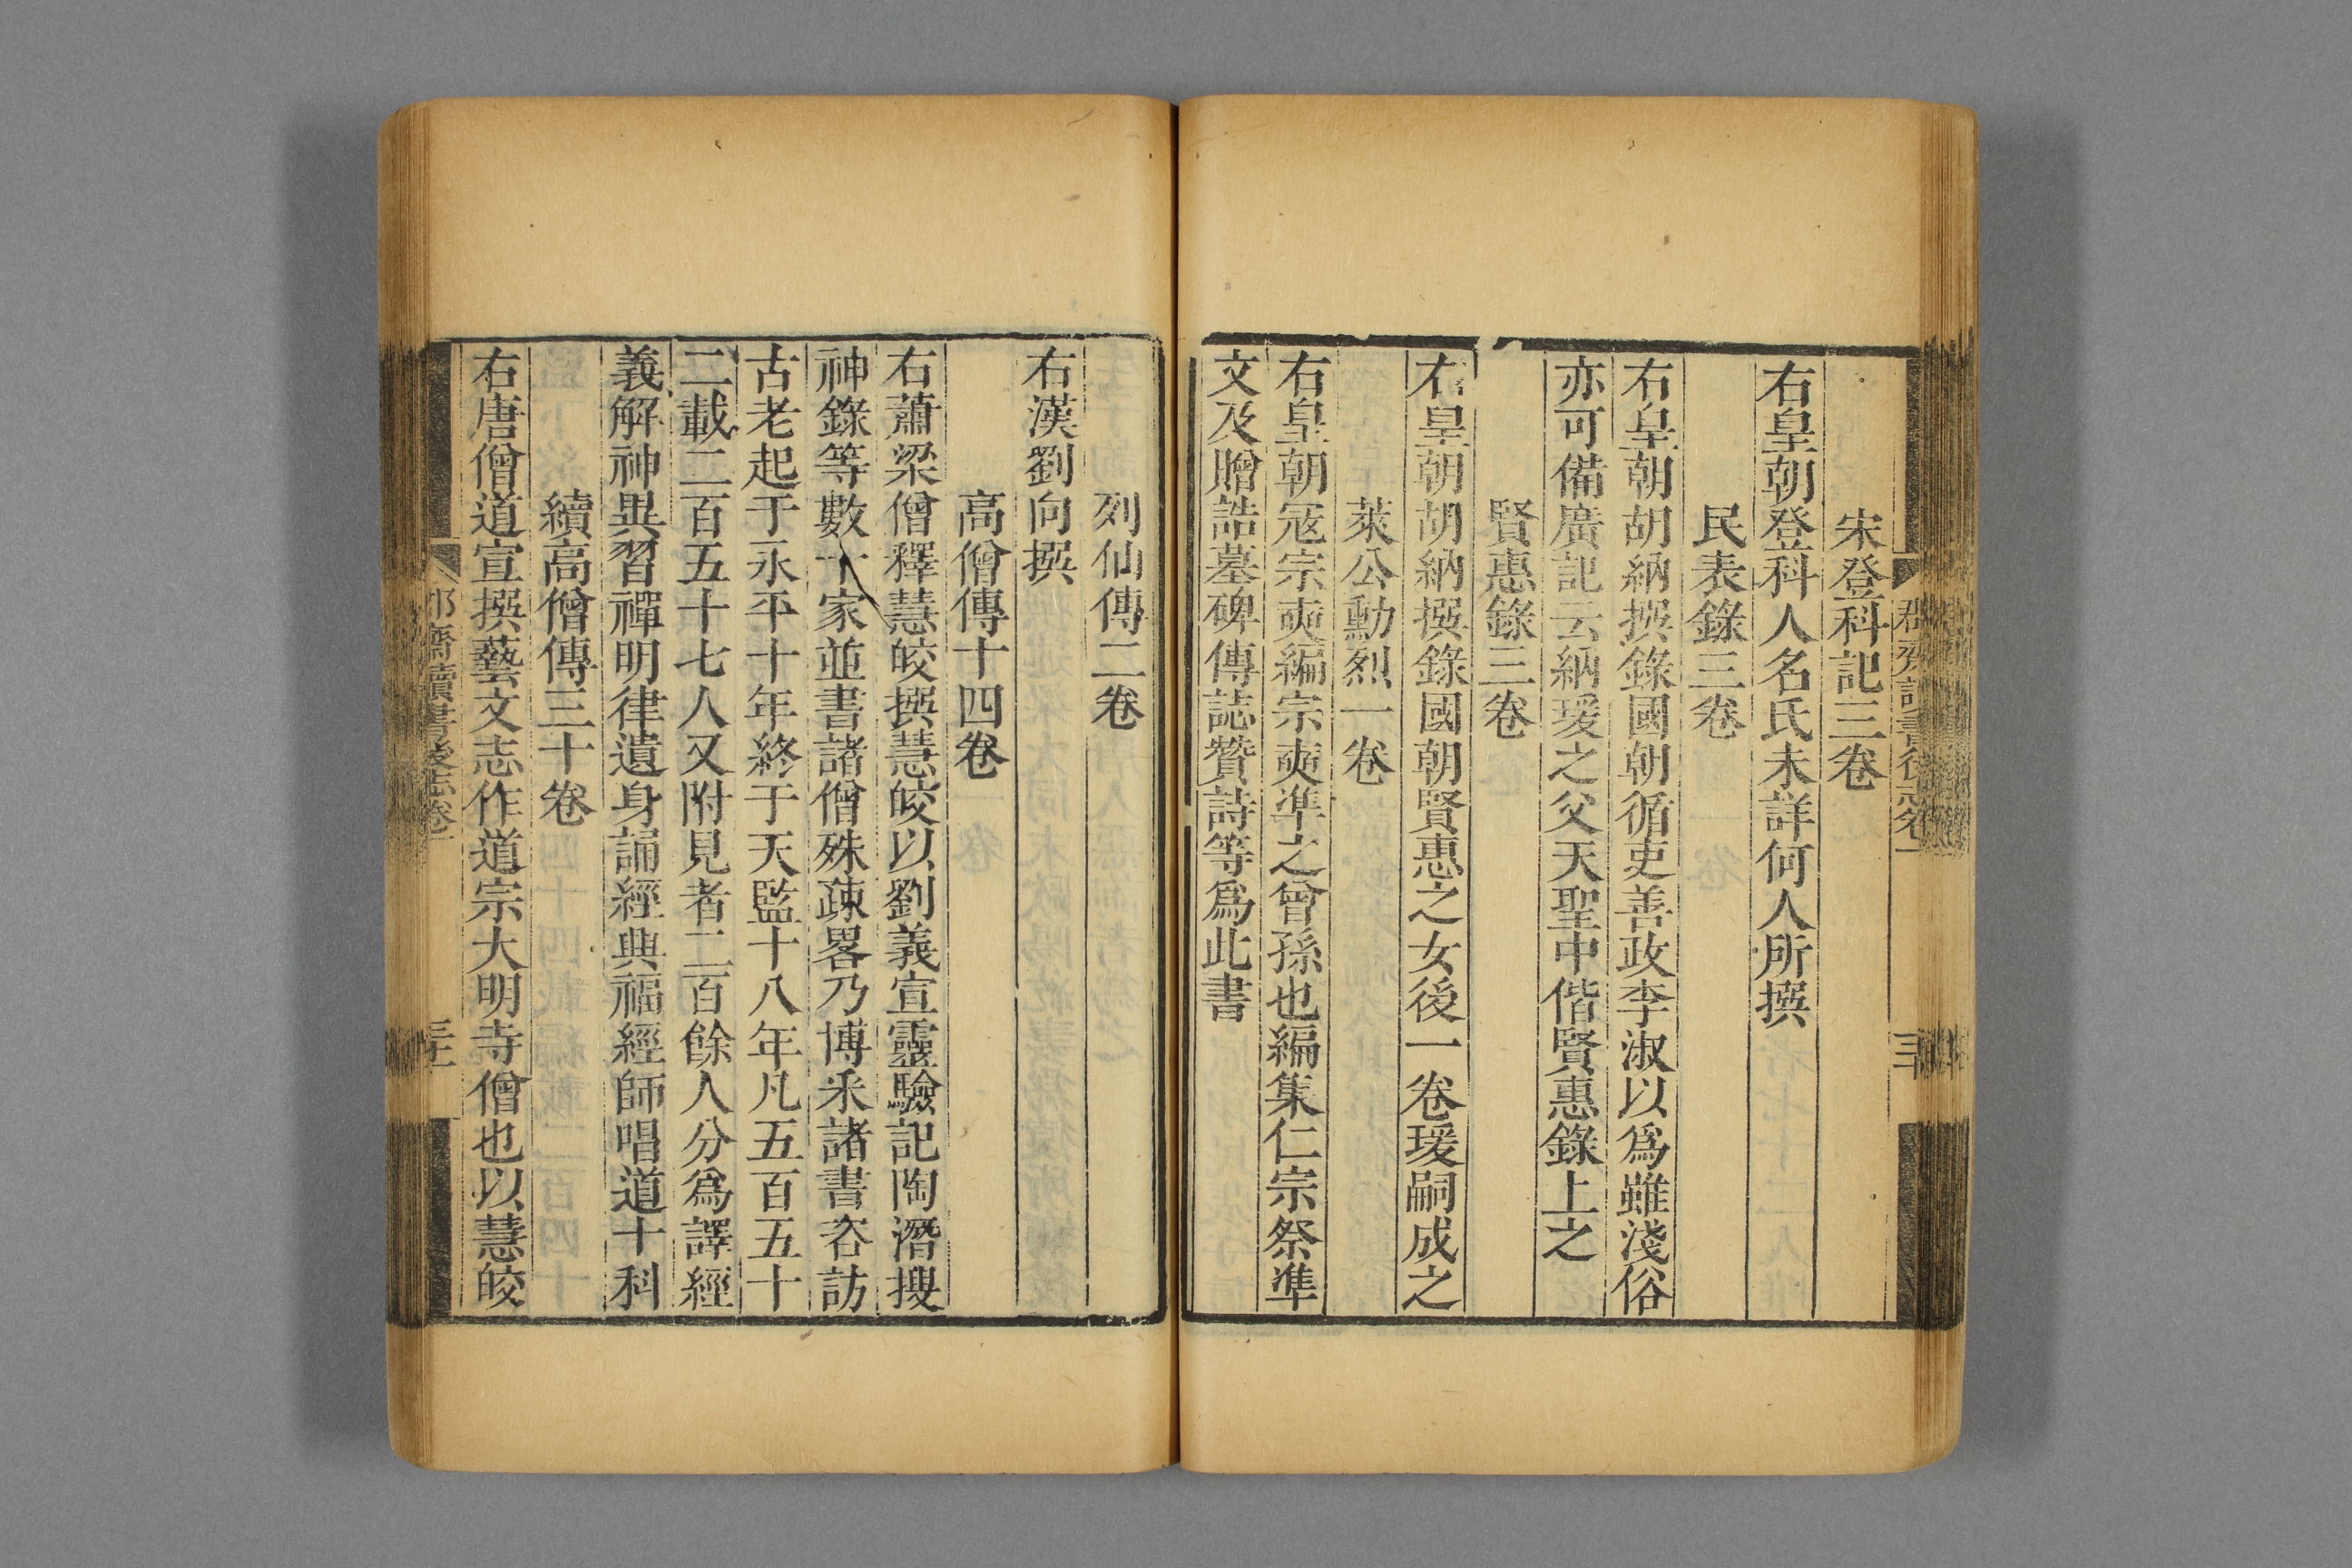 宋登科記三卷
右皇朝登科人名氏未詳何人所撰
民表錄三卷
右皇朝胡納撰錄國朝循吏善政李淑以爲雖淺俗
亦可備廣記云納瑗之父天聖中偕賢惠錄上之
賢惠錄三卷
右皇朝胡納撰錄國朝賢惠之女後一卷瑗嗣成之
萊公勳烈一卷
右皇朝寇宗奭編宗奭準之曾孫也編集仁宗祭準
文及贈誥墓碑傳誌贊詩等爲此書
列仙傳二卷
右漢劉向撰
高僧傳十四卷
右蕭梁僧釋慧皎撰慧皎以劉義宣靈驗記陶潛搜
神錄等數十家並書諸僧殊疎畧乃博釆諸書咨訪
古老起于永平十年終于天監十八年凡五百五十
二載二百五十七人又附見者二百餘人分爲譯經
義解神異習禪明律遺身誦經興福經師唱道十科
續高僧傳三十卷
右唐僧道宣撰藝文志作道宗大明寺僧也以慧皎
齋讀書後志卷一